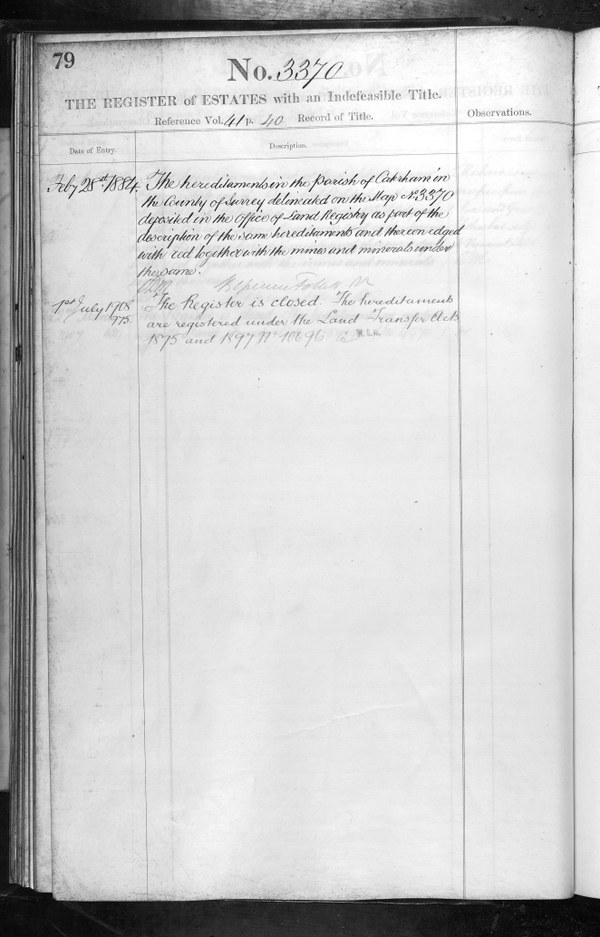 79
No. 3370
THE REGISTER of ESTATES with an Indefeasible Title.
Reference Vol. 41 p. 40 Record of Title.
Observations.
Date of Entry.
Description.
Feby 28th 1884. The hereditaments in the Parish of Caterham in
the County of Surrey delineated on the Map No 3370
deposited in the Office of Land Registry as part of the
description of the same hereditaments and thereon edged
with red together with the mines and minerals under
the same.
1st July 1908 The Register is closed. The hereditaments
are registered under the Land Transfer Acts
1875 and 1897 No 10696